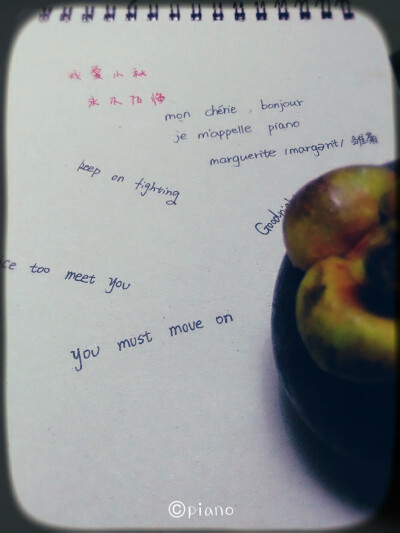 我爱小秋
永不后悔
mon chérie , bonjour
je m'appelle piano
marguerite /margərit/ 雏菊
keep on fighting
ce too meet you
you must move on
©piano